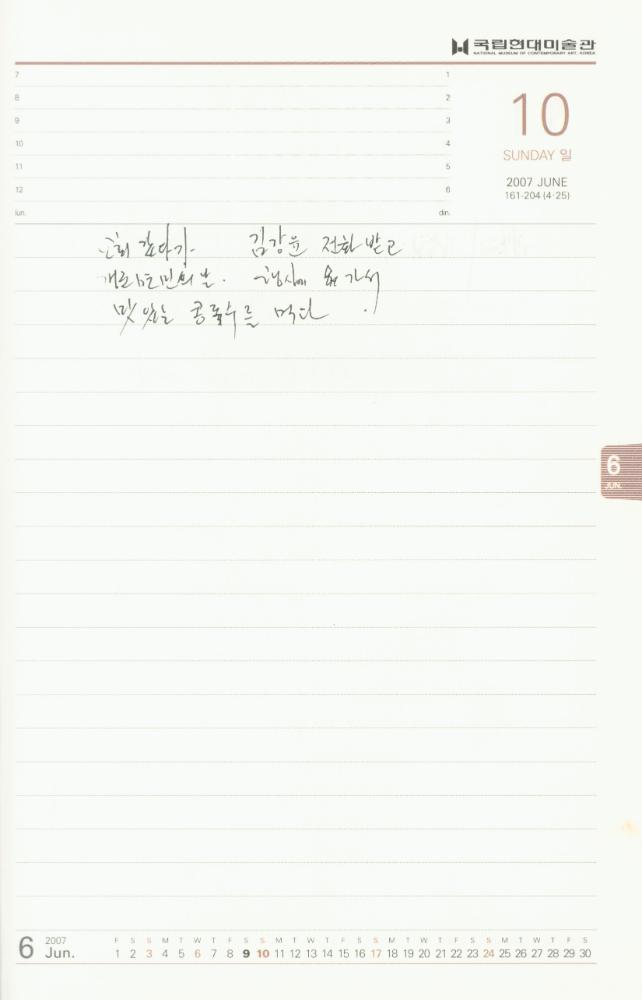 국립현대미술관
NATIONAL MUSEUM OF CONTEMPORARY ART, KOREA
7 1
8 2
9 3
10 4
11 5
12 6
lun. din.
10
SUNDAY 일
2007 JUNE
161-204 (4·25)
김강윤 전화 받고
가서
맛있는 콩국수를 먹다
6
JUN.
6 2007 Jun.
F S S M T W T F S S M T W T F S S M T W T F S S M T W T F S
1 2 3 4 5 6 7 8 9 10 11 12 13 14 15 16 17 18 19 20 21 22 23 24 25 26 27 28 29 30